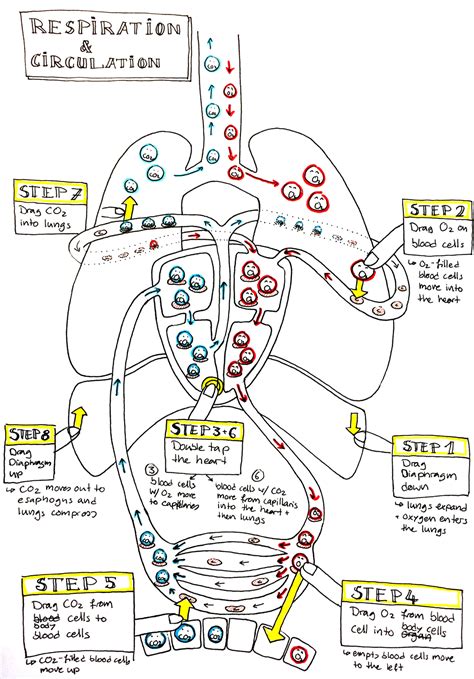 RESPIRATION
&
CIRCULATION
STEP 7
Drag CO2
into lungs
STEP 2
Drag O2 on
blood cells
↳ O2-filled
blood cells
move into
the heart
STEP 8
Drag
Diaphragm
up
↳ CO2 moves out to
esaphogus and
lungs compress
STEP 3+6
Double tap
the heart
③
blood cells
w/ O2 move
to capillaries
⑥
blood cells w/ CO2
move from capillaris
into the heart +
then lungs
STEP 1
Drag
Diaphragm
down
↳ lungs expand
+ oxygen enters
the lungs
STEP 5
Drag CO2 from
blood cells to
body
blood cells
↳ CO2-filled blood cells
move up
STEP 4
Drag O2 from blood
Cell into body cells
organ
↳ empty blood cells move
to the left